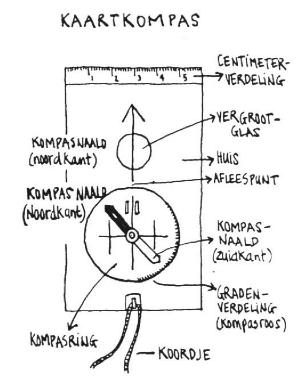 KAARTKOMPAS
CENTIMETER-
VERDELING
1 2 3 4 5
VERGROOT-
GLAS
KOMPASNAALD
(noordkant)
HUIS
AFLEESPUNT
KOMPASNAALD
(Noordkant)
KOMPAS-
NAALD
(zuidkant)
GRADEN-
VERDELING
(kompasroos)
KOMPASRING
KOORDJE